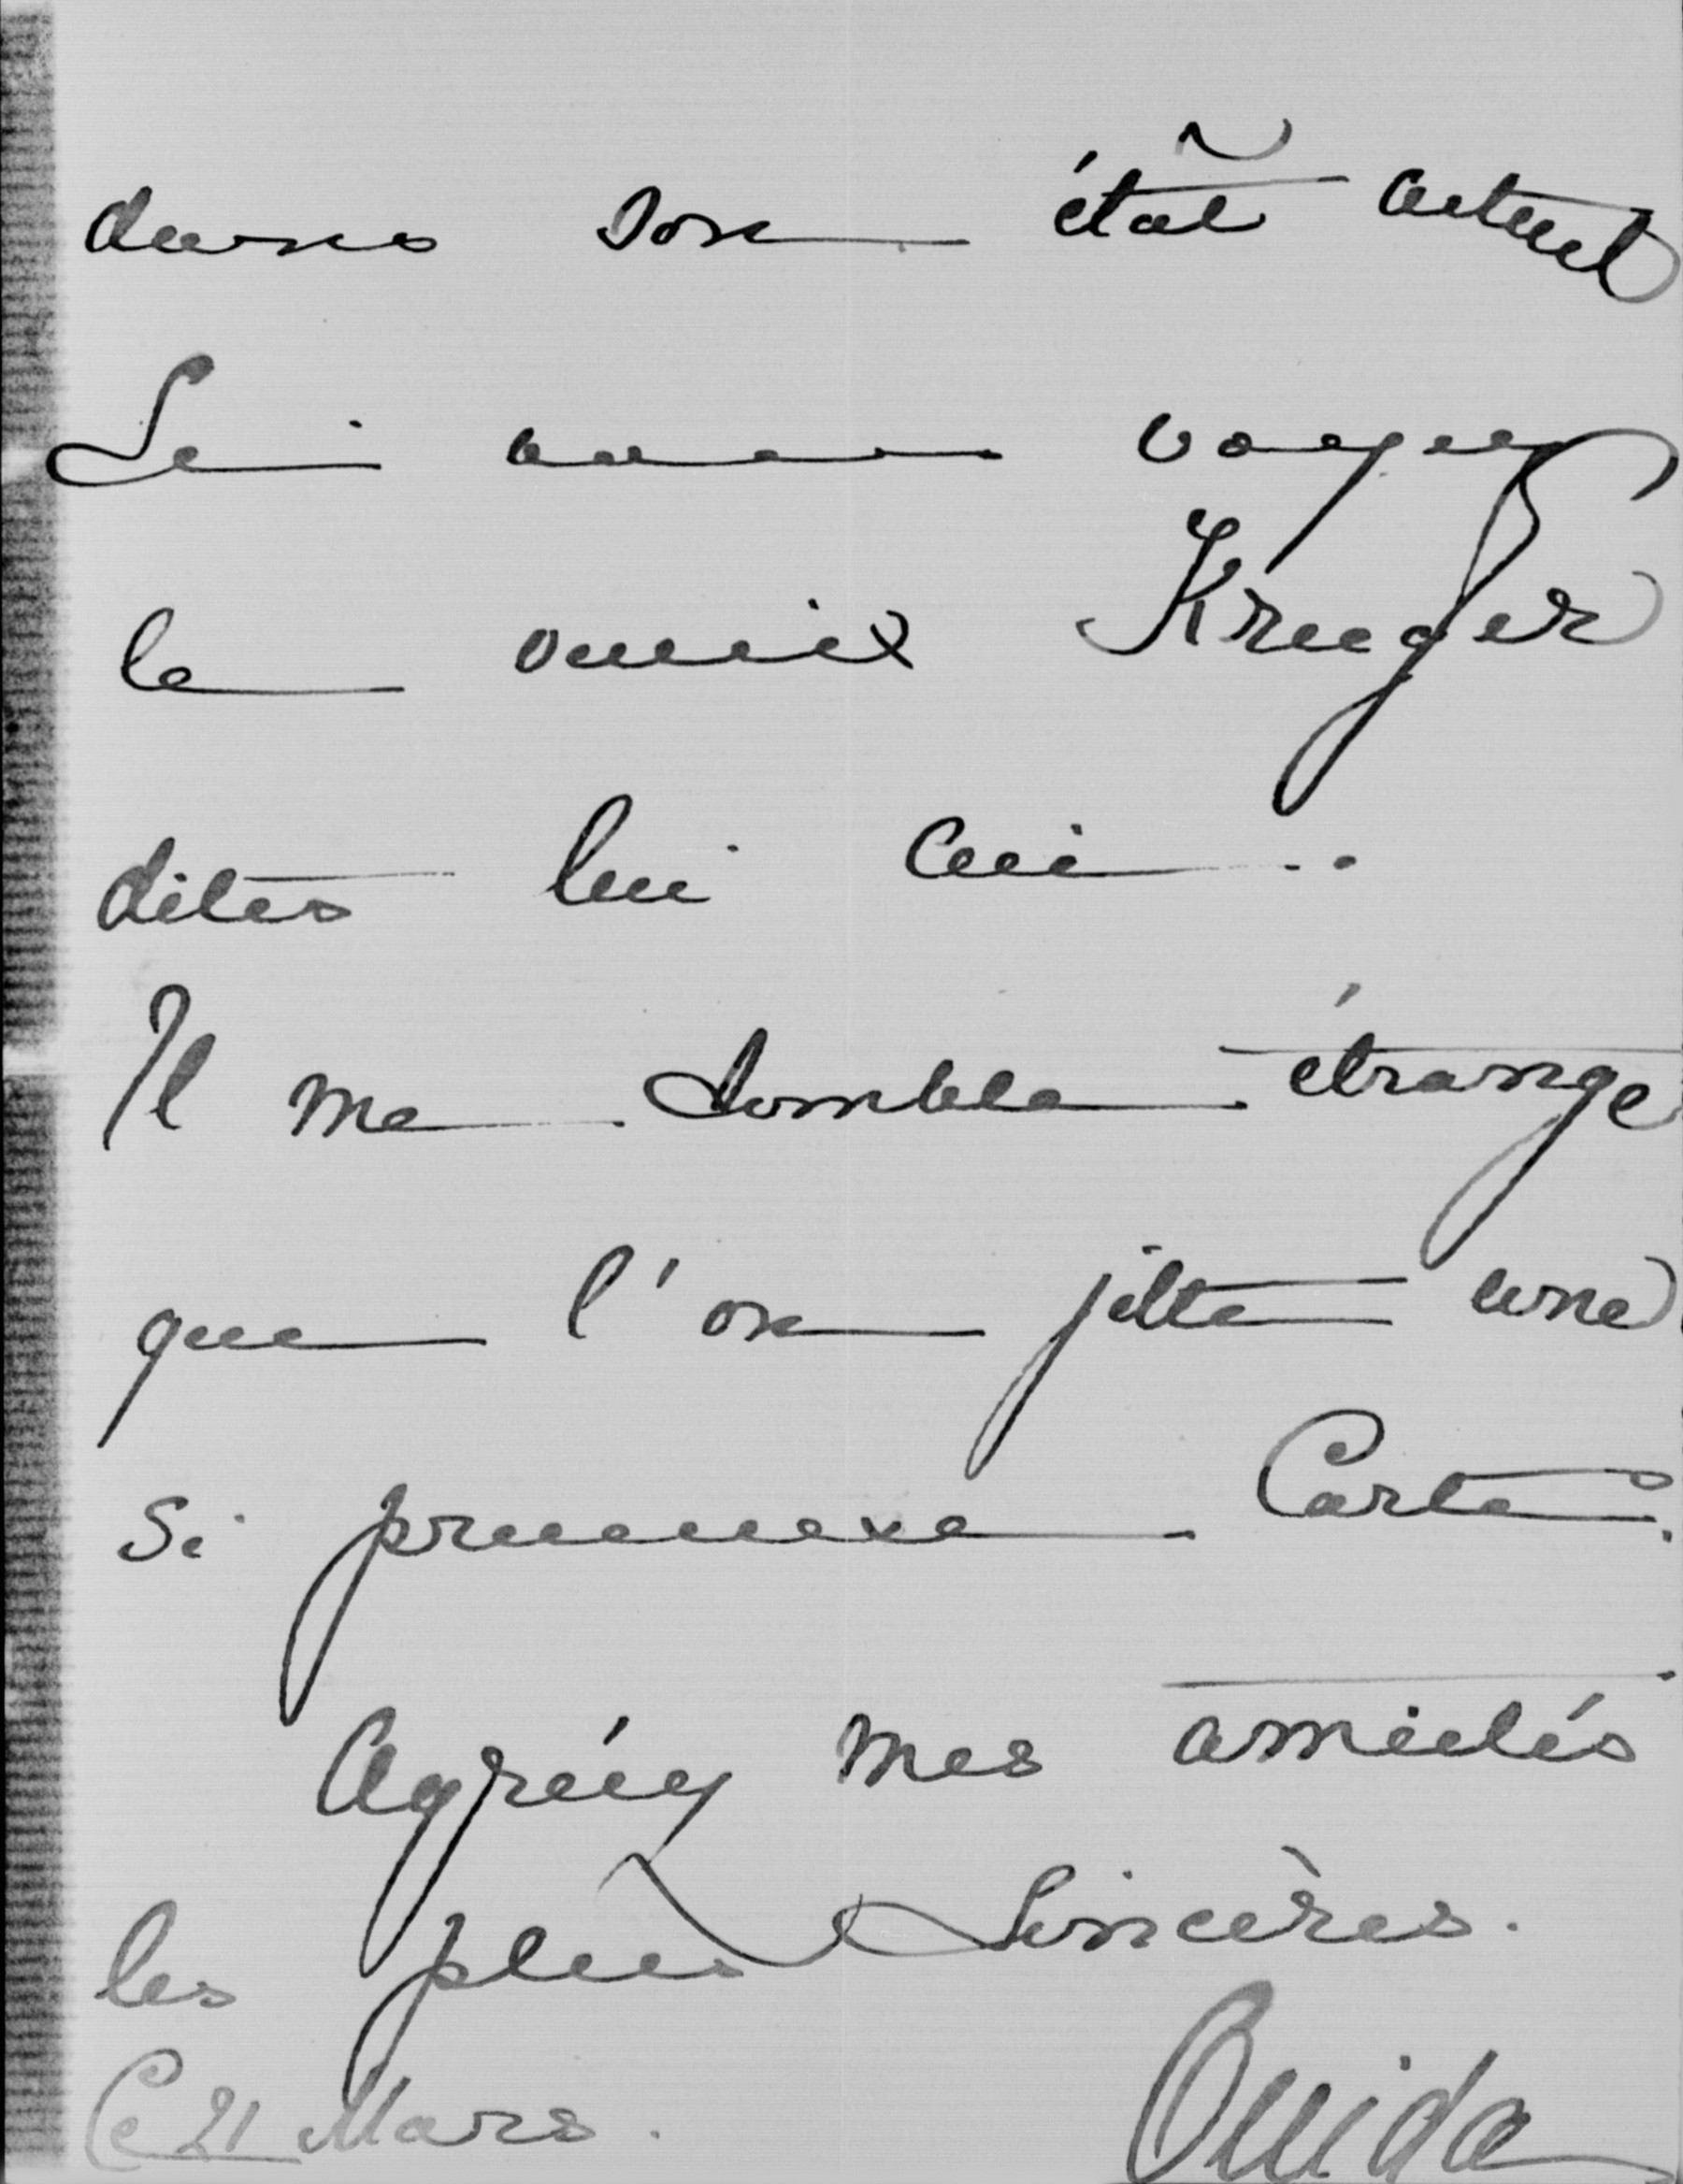 dans son état actuel
Si vous voyez
le vieux Kruger
dites lui ceci..
Il me semble étrange
que l'on jette une
si precieuse Carte.
Agréez mes amitiés
les plus Sincères.
Ce 21 Mars.
Ouida